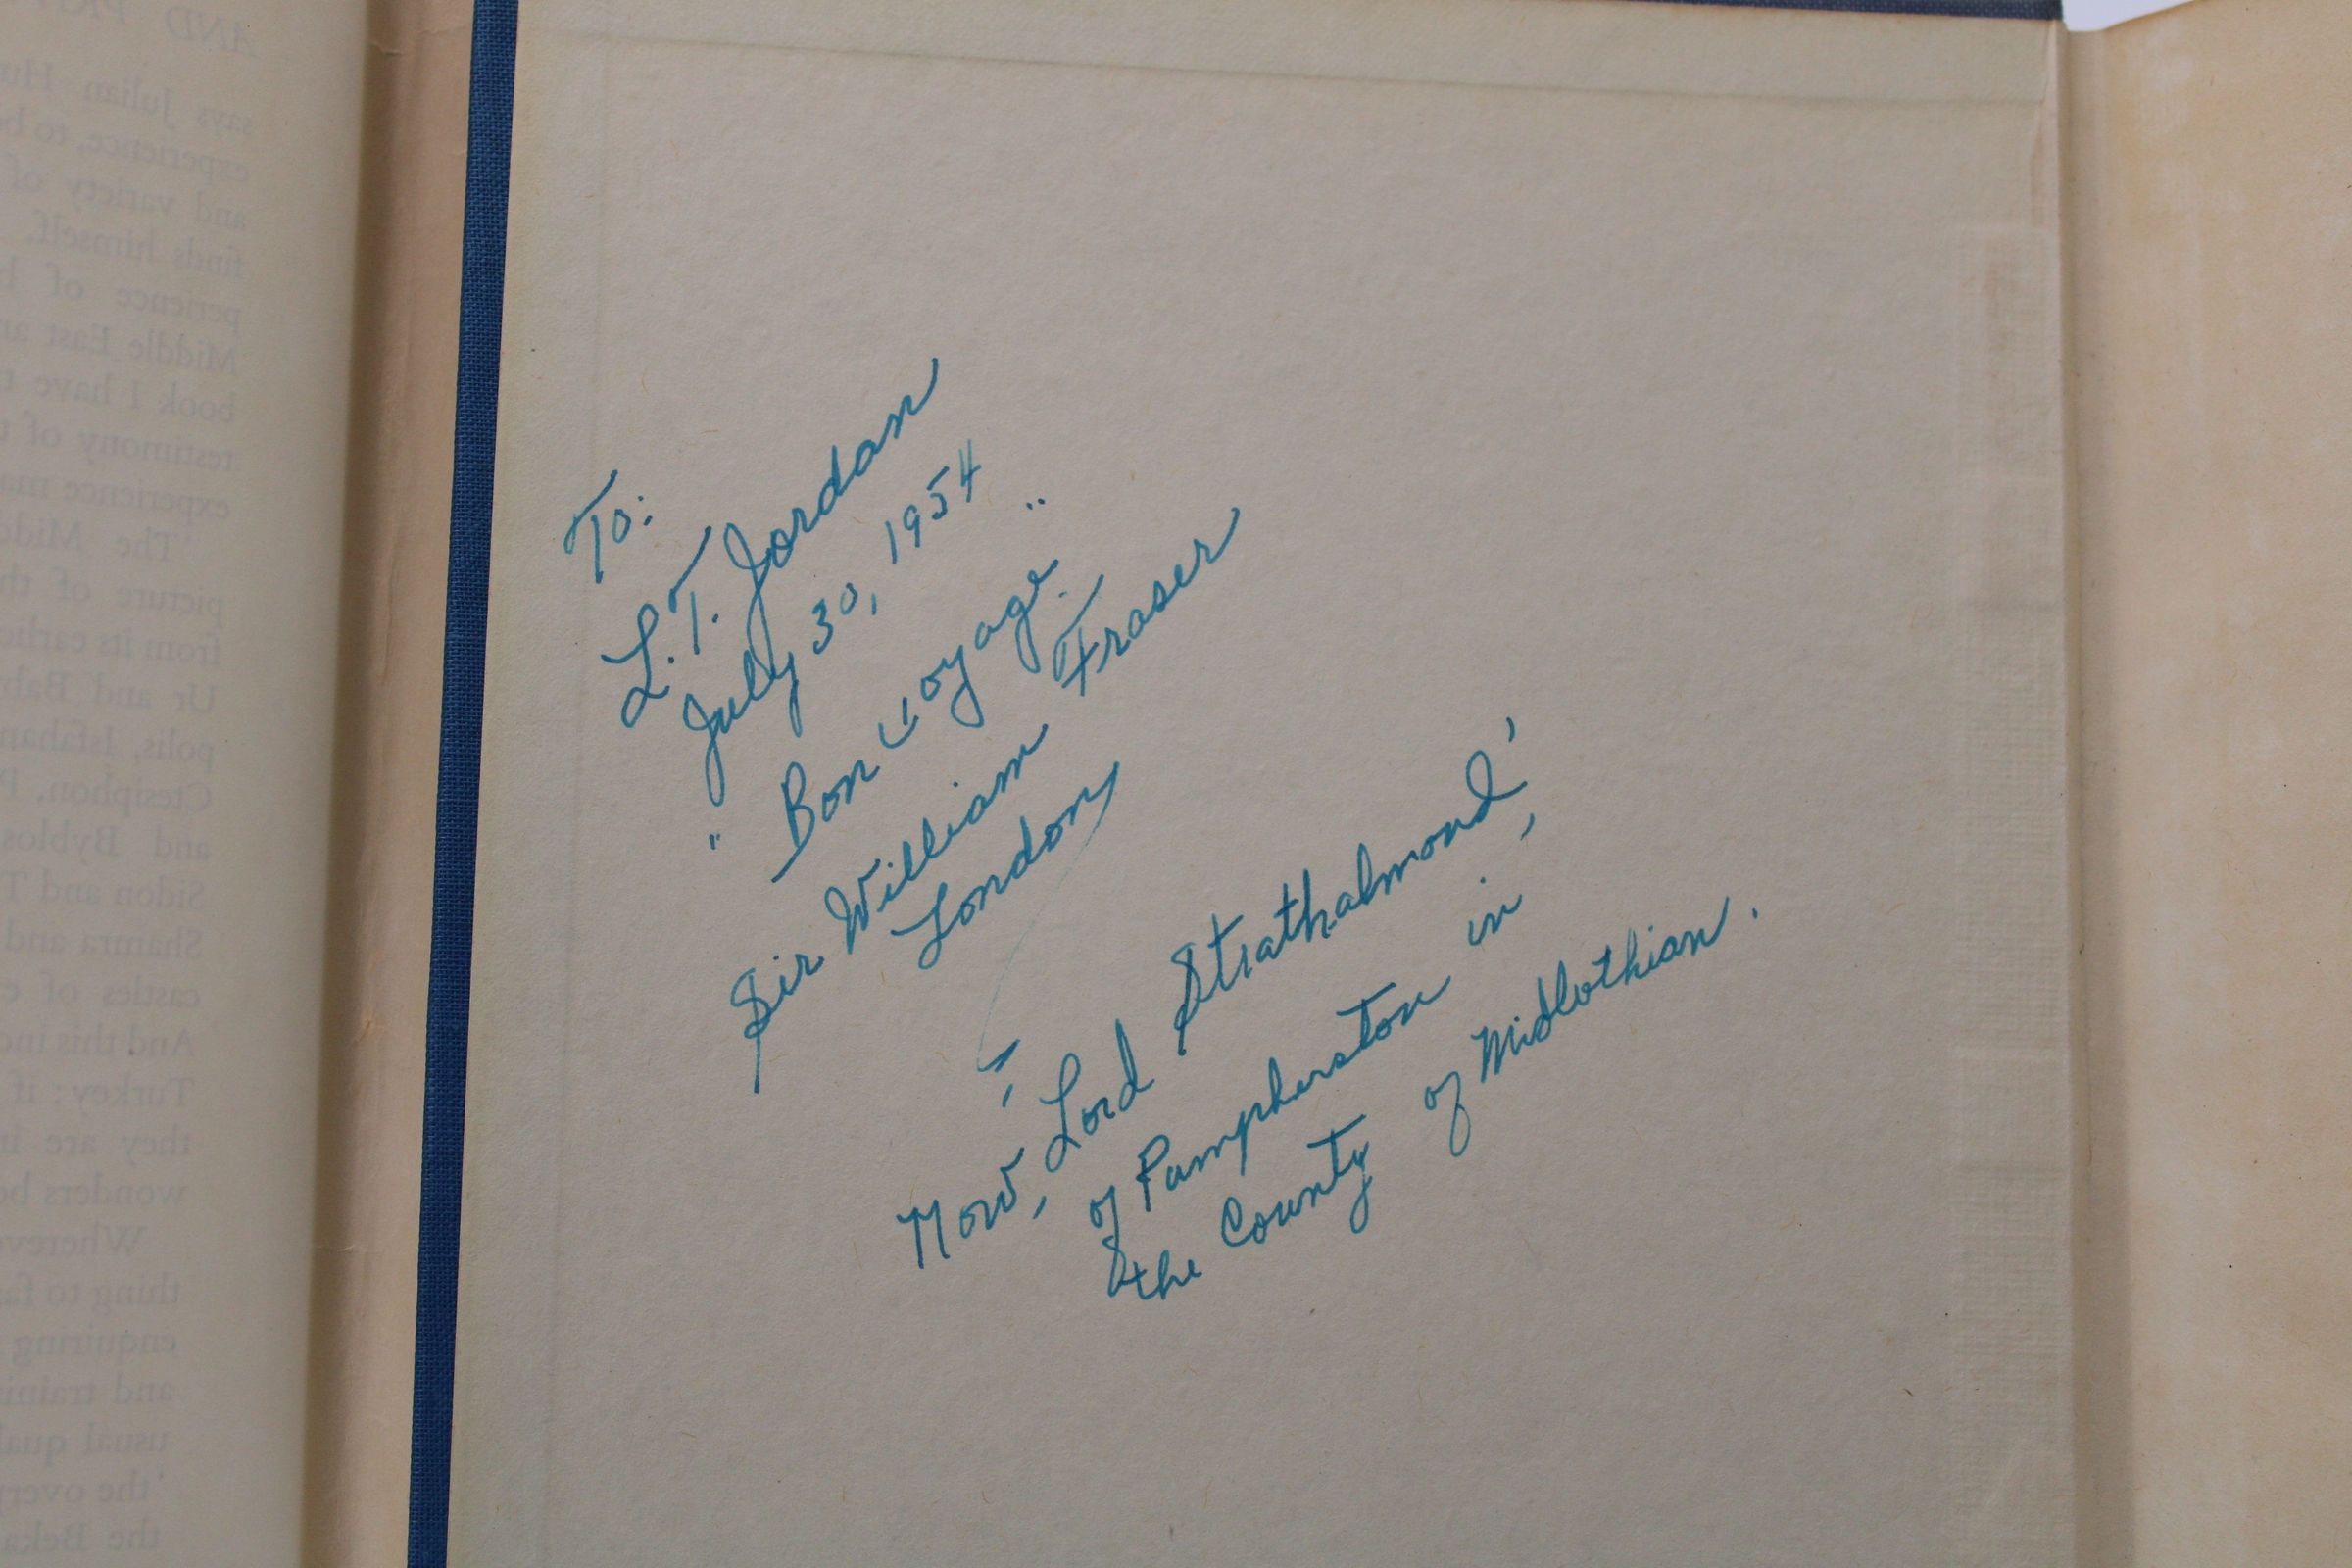 AND
says Julian Hu
experience, to b
and variety of
finds himself.
perience of b
Middle East an
book I have t
testimony of t
experience ma
The Midd
picture of th
from its earlie
Ur and Bab
polis, Isfahan
Ctesiphon, P
and Byblos
Sidon and T
Shamra and
castles of
And this mo
Turkey; if
they are in
wonders be
Wherev
thing to fa
enquiring
and traini
usual qual
'the overp
the Beka
To:
L.T. Jordan
July 30, 1954
"Bon voyage."
Sir William Fraser
London
Now, Lord Strathalmond,'
of Pumpherston in,
the County of Midlothian.